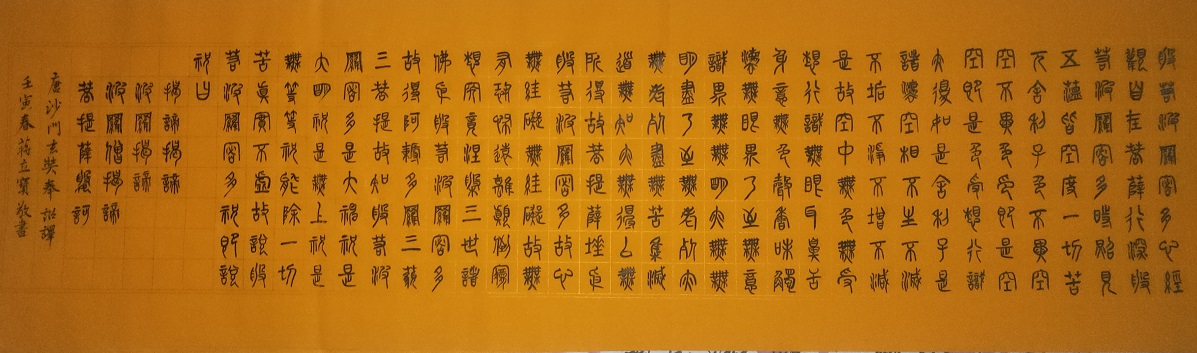 般若波羅蜜多心經
觀自在菩薩行深般
若波羅蜜多時照見
五蘊皆空度一切苦
厄舍利子色不異空
空不異色色即是空
空即是色受想行識
亦復如是舍利子是
諸法空相不生不滅
不垢不淨不增不減
是故空中無色無受
想行識無眼耳鼻舌
身意無色聲香味觸
法無眼界乃至無意
識界無無明亦無無
明盡乃至無老死亦
無老死盡無苦集滅
道無智亦無得以無
所得故菩提薩埵依
般若波羅蜜多故心
無罣礙無罣礙故無
有恐怖遠離顛倒夢
想究竟涅槃三世諸
佛依般若波羅蜜多
故得阿耨多羅三藐
三菩提故知般若波
羅蜜多是大神咒是
大明咒是無上咒是
無等等咒能除一切
苦真實不虛故說般
若波羅蜜多咒即說
咒曰
揭諦揭諦
波羅揭諦
波羅僧揭諦
菩提薩婆訶
唐沙門玄奘奉詔譯
壬寅春立寶敬書